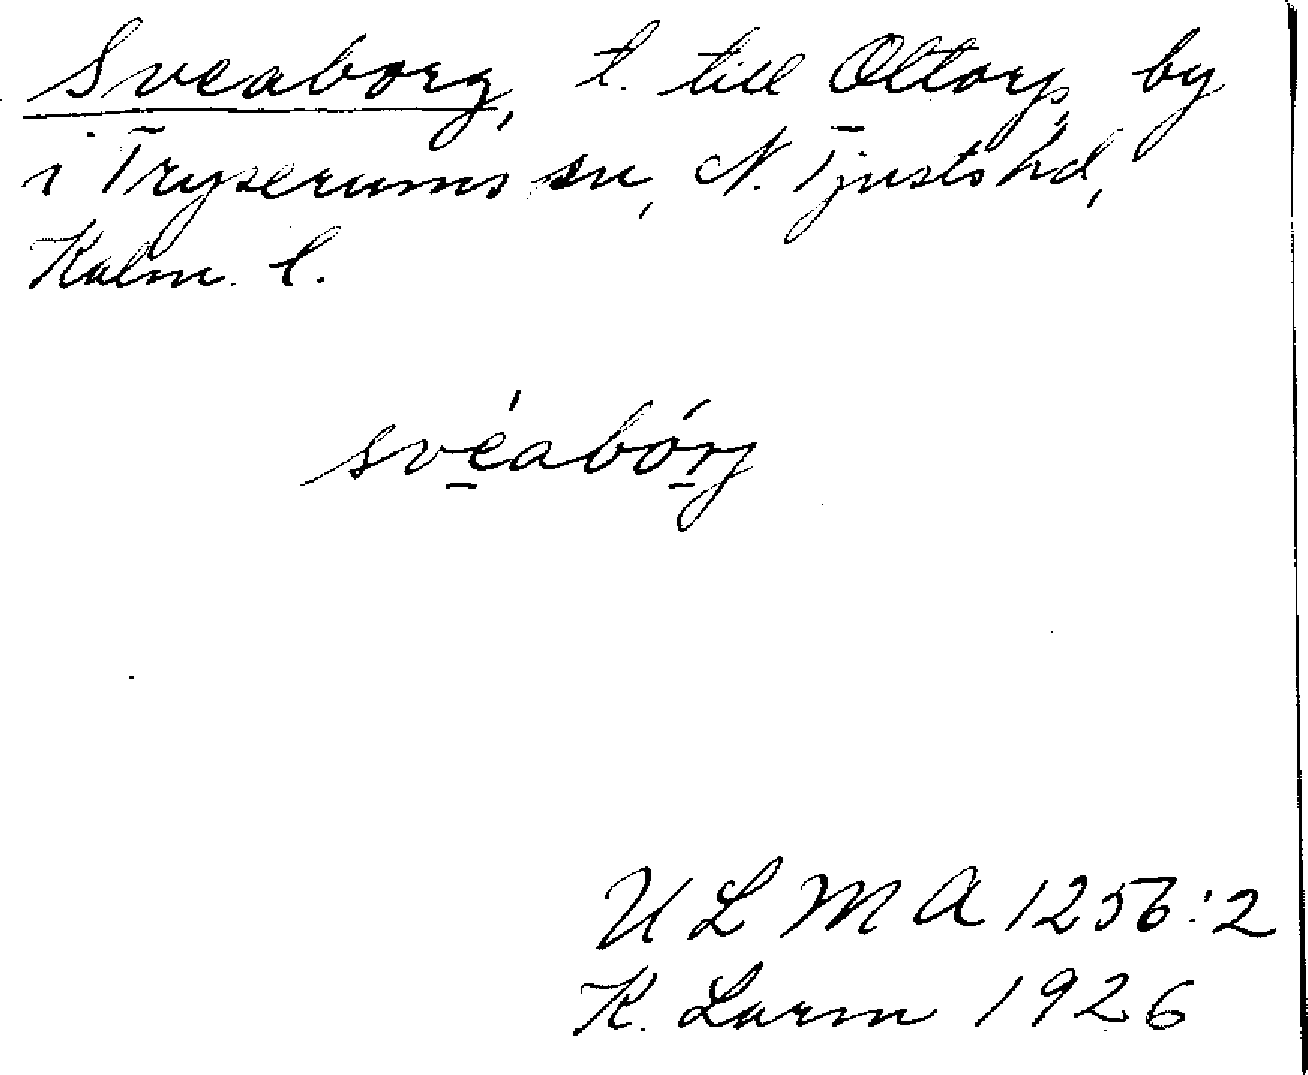 Sveaborg, t. till Oltorp, by
i Tryserums sn, N. Tjusts hd,
Kalm. l.
svéabórj
U L M A 1256:2
K. Larm 1926